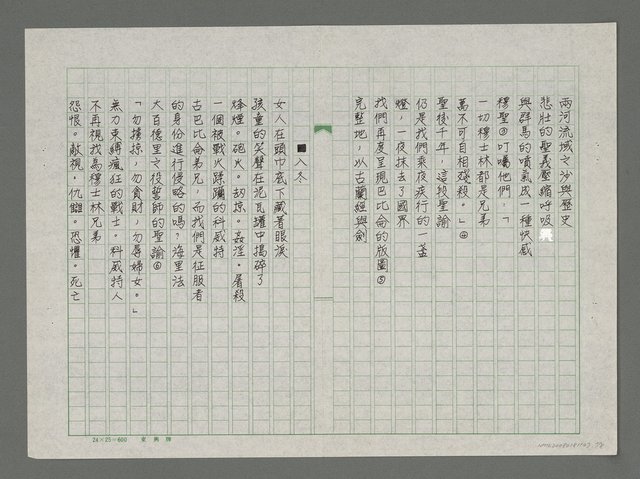 兩河流域之沙與歷史
悲壯的聖義壓縮呼吸
與群馬的噴氣成一種快感
穆聖③叮囑他們:「
一切穆士林都是兄弟
萬不可自相殘殺。」④
聖後千年,這段聖諭
仍是我們乘夜疾行的一盞
燈,一夜抹去了國界
我們再度呈現巴比倫的版圖⑤
完整地,以古蘭經與劍
入冬
女人在頭巾底下藏著眼淚
孩童的笑聲在泥瓦罐中搗碎了
烽煙。砲火。劫掠。姦淫。屠殺
一個被戰火蹂躪的科威特
古巴比倫弟兄,而我們是征服者
的身份進行侵略的嗎,海里法
大百德里之役誓師的聖諭⑥
「勿擄掠,勿貪財,勿辱婦女。」
無力束縛瘋狂的戰士。科威特人
不再視我為穆士林兄弟
怨恨。敵視。仇讎。恐懼。死亡
24×25=600 東興牌